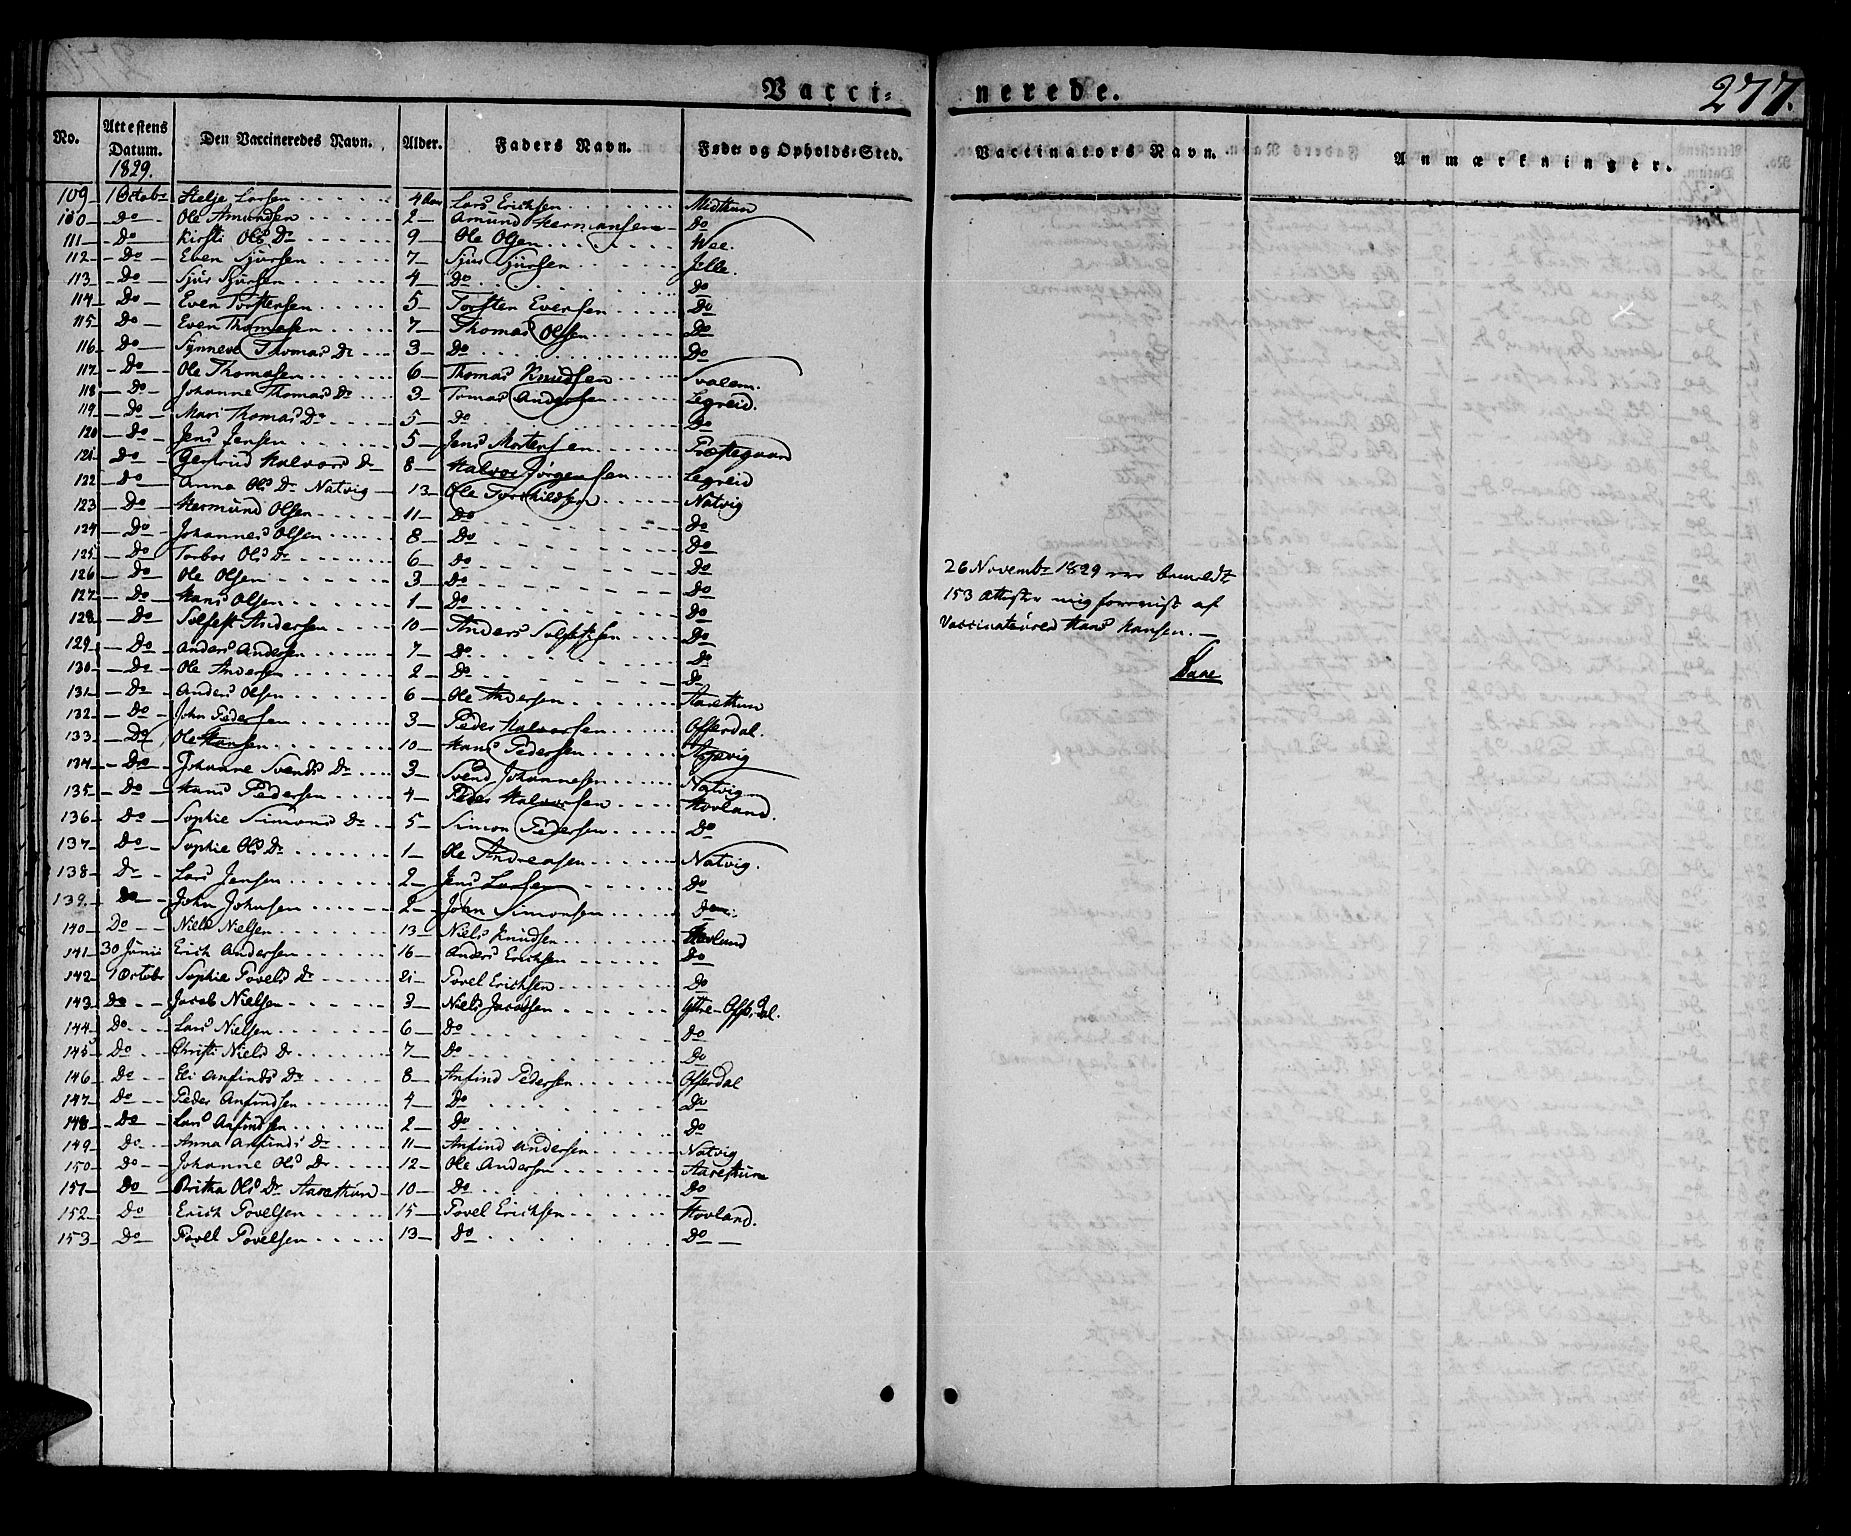 Vacci- nerede. 277.
No. Attestens Datum. Den Vaccineredes Navn. Alder. Faders Navn. Føde- og Opholds-Sted. Vaccinators Navn. Anmærkninger.
1829.
109 1 Octobr Helje Larsen 4 Lars Erichsen Midthun
110 Do Ole Amunden 2 Amund Hermansen Do
111 Do Kirsti Ols Dr 9 Ole Olsen Wee.
112 Do Even Sjursen 7 Sjur Sjursen Jelle.
113 Do Sjur Sjursen 4 Do Do
114 Do Even Torstensen 5 Torsten Evensen Do
115 Do Even Thomasen 7 Thomas Olsen Do
116 Do Synneve Thomas Dr 3 Do Do
117 Do Ole Thomasen 6 Thomas Knudsen Svalem.
118 Do Johanne Thomas Dr 3 Tomas Andersen Legreid.
119 Do Mari Thomas Dr 5 Do Do
120 Do Jens Jensen 5 Jens Mortensen Præstegaard
121 Do Gertrud Halvors Dr 8 Halvor Jørgensen Legreid
122 Do Anna Ols Dr Natvig 13 Ole Torchildsen Natvig
123 Do Hermund Olsen 11 Do Do
124 Do Johannes Olsen 8 Do Do
125 Do Torbor Ols Dr 6 Do Do
126 Do Ole Olsen 3 Do Do
127 Do Hans Olsen 1 Do Do
128 Do Solfest Andersen 10 Anders Solfestsen Do
129 Do Anders Andersen 7 Do Do
130 Do Ole Andersen 2 Do Do
131 Do Anders Olsen 6 Ole Andersen Aarethun
132 Do John Pedersen 3 Peder Halvorsen Offerdal.
133 Do Ole Hansen 10 Hans Pedersen
134 Do Johanne Svends Dr 3 Svend Johannesen Natvig
135 Do Hans Pedersen 4 Peder Halvorsen Hovland.
136 Do Sophie Simons Dr 5 Simon Pedersen Do
137 Do Sophie Ols Dr 1 Ole Andreasen Natvig.
138 Do Lars Jensen 2 Jens Larsen Do
139. Do John Johnsen 2 John Simonsen Do
140 Do Niels Nielsen 13 Niels Knudsen Hovland
141 30 Junii Erich Andersen 16 Anders Erichsen Do
142 1 Octobr Sophie Povels Dr 21 Povel Erichsen Do
143 Do Jacob Nielsen 3 Niels Jacobsen Yttre-Offerdal.
144 Do Lars Nielsen 6 Do Do
145 Do Christi Niels Dr 7 Do Do
146 Do Eli Anfinds Dr 8 Anfind Pedersen Offerdal
147 Do Peder Anfindsen 4 Do Do
148 Do Lars Anfindsen 2 Do Do
149 Do Anna Anfinds Dr 11 Anfind Andersen Natvig
150 Do Johanne Ols Dr 12 Ole Andersen Aarethun
151 Do Britha Ols Dr Aarethun 10 Do Do
152 Do Erich Povelsen 15 Povel Erichsen Hovland.
153 Do Povel Povelsen 13 Do Do
26 Novembr 1829 var bemeldt
153 Attester mig foreviist af
Vaccinateured Hans Hansen.